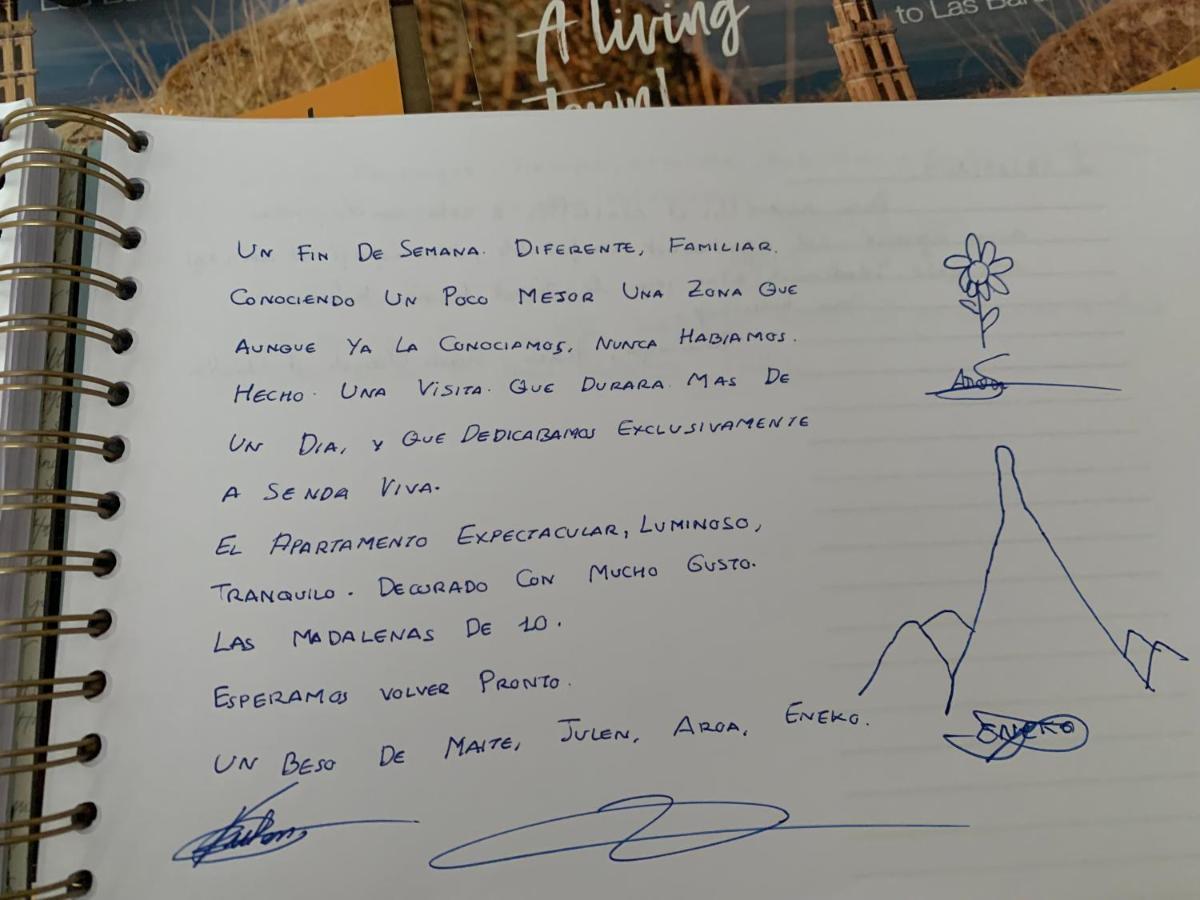 to Las Bar
A living
town!
UN FIN DE SEMANA. DIFERENTE, FAMILIAR.
CONOCIENDO UN POCO MEJOR UNA ZONA QUE
AUNQUE YA LA CONOCIAMOS, NUNCA HABIAMOS.
HECHO. UNA VISITA. QUE DURARA MAS DE
UN DIA, Y QUE DEDICABAMOS EXCLUSIVAMENTE
A SENDA VIVA.
EL APARTAMENTO EXPECTACULAR, LUMINOSO,
TRANQUILO. DECORADO CON MUCHO GUSTO.
LAS MADALENAS DE 10.
ESPERAMOS VOLVER PRONTO.
UN BESO DE MAITE, JULEN, AROA, ENEKO.
ENEKO